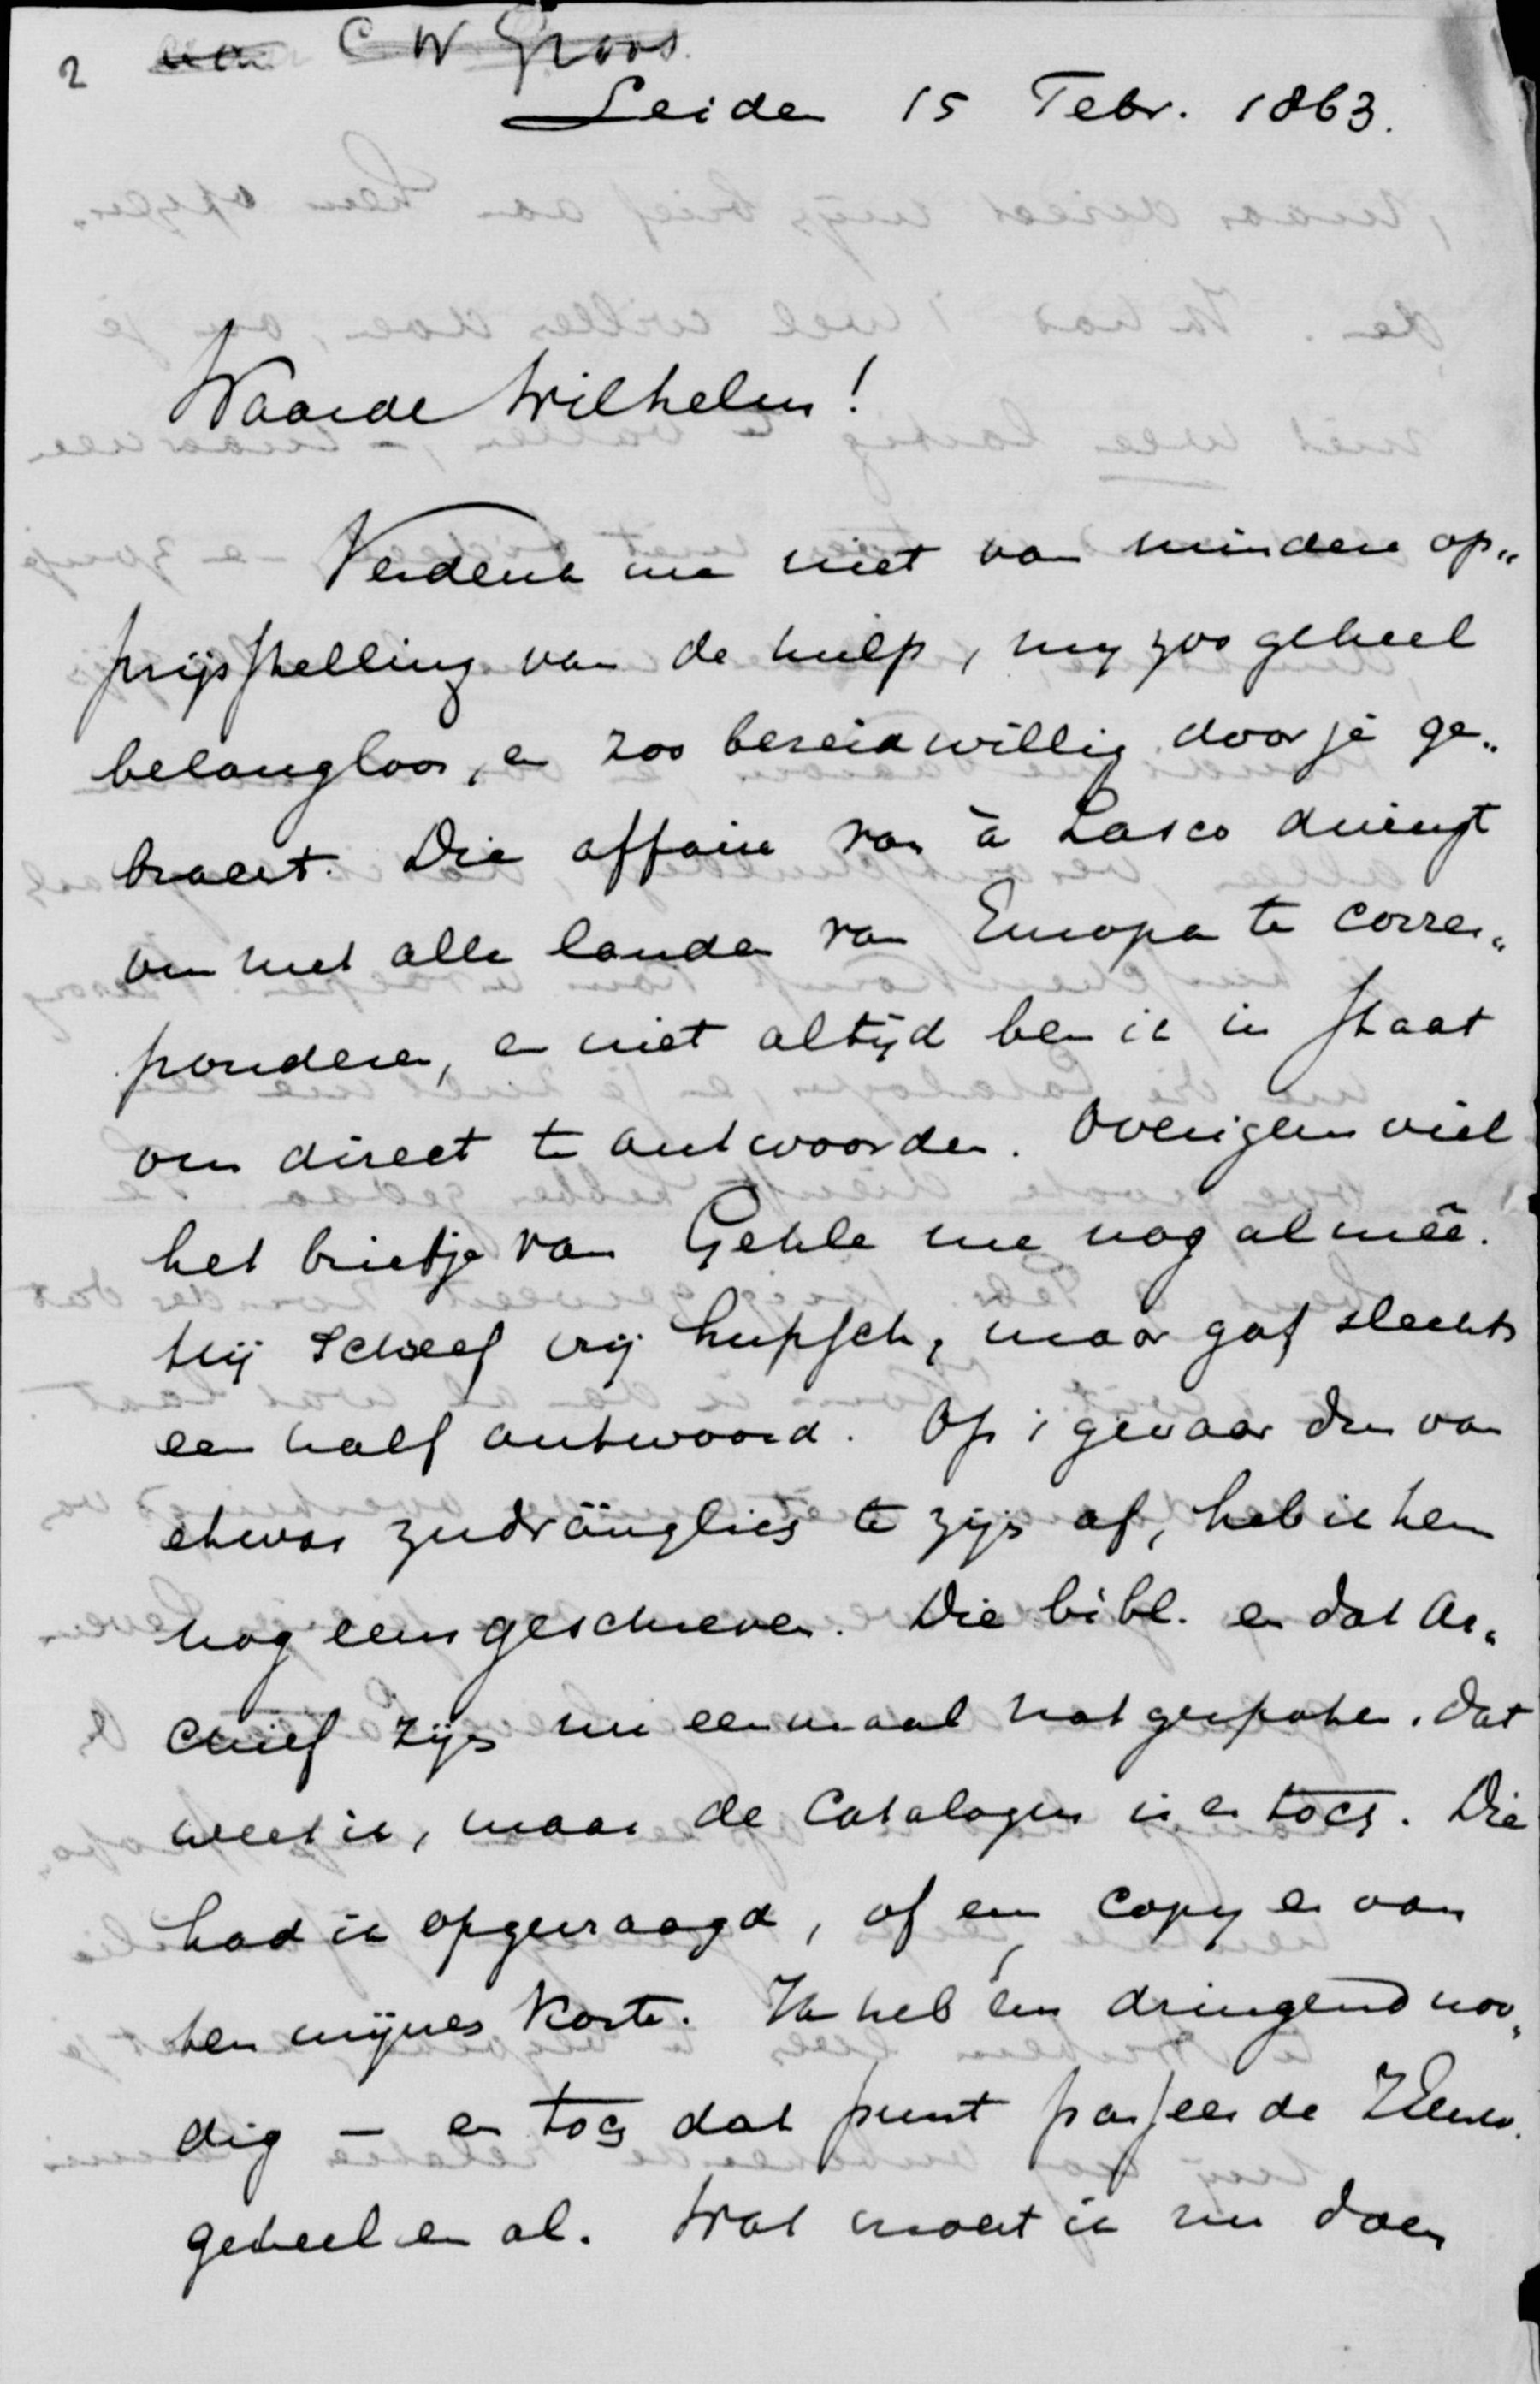 2 aan C W Groos
Leiden 15 Febr. 1863.
Waarde Wilhelm!
Verdenk me niet van mindere op„
prijsstelling van de hulp, my zoo geheel
belangloos, en zoo bereidwillig door je ge„
bracht. Die affaire van à Lasco dwingt
om met alle landen van Europa te corres„
pondeeren, en niet altijd ben ik in staat
om direct te antwoorden. Overigens viel
het briefje van Gehle me nog al meê.
Hij schreef vrij hupsch, maar gaf slechts
een half antwoord. Op 't gevaar dus van
etwas zudränglich te zijn af, heb ik hem
nog eens geschreven. Die bibl. en dat Ar„
chief zijn nu eenmaal nat gespoten. dat
weet ik, maar de Catalogus is er toch. Die
had ik opgevraagd, of een copy er van
ten mijnen koste. Ik heb hem dringend noo„
dig — en toch dat punt passeerde ZEerw.
geheel en al. Wat moet ik nu doen